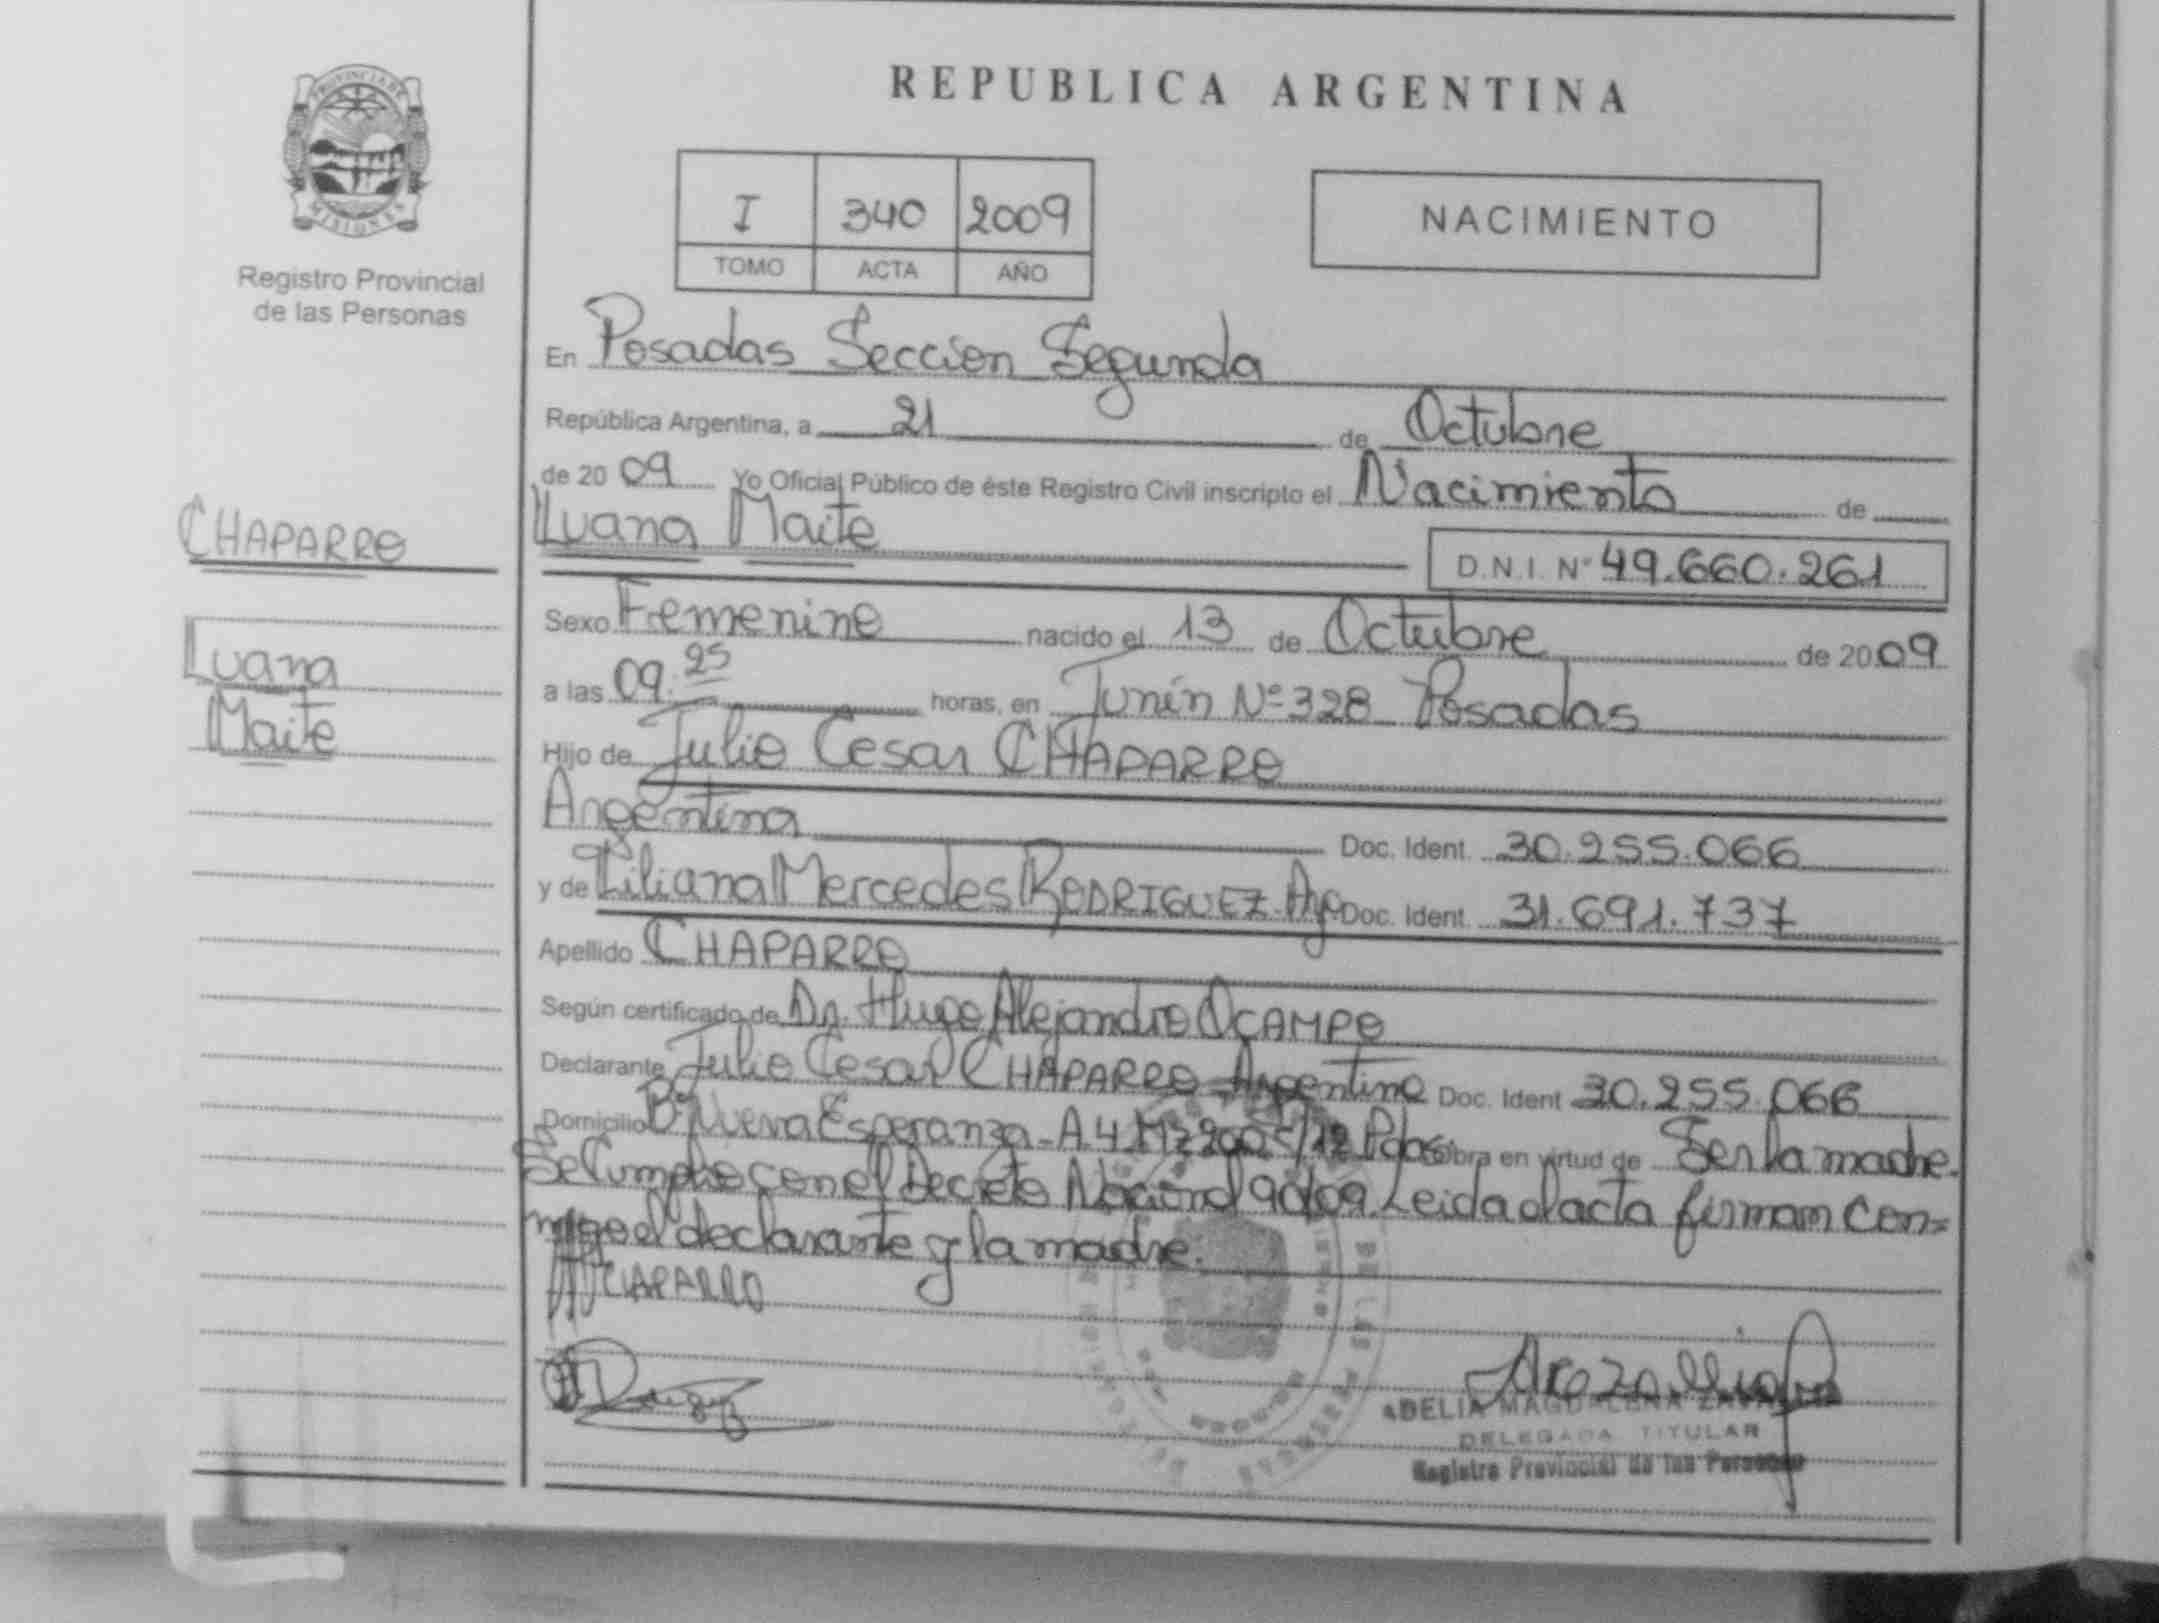 PROVINCIA DE
MISIONES
Registro Provincial
de las Personas
CHAPARRO
Luana
Maite
REPUBLICA ARGENTINA
I 340 2009
TOMO ACTA AÑO
NACIMIENTO
En Posadas Seccion Segunda
República Argentina, a 21 de Octubre
de 20 09 Yo Oficial Público de éste Registro Civil inscripto el Nacimiento de
Luana Maite
D.N.I. Nº 49.660.261
Sexo Femenino nacido el 13 de Octubre de 20 09
a las 09:25 horas, en Junín Nº 328 Posadas
Hijo de Julio Cesar CHAPARRO
Argentina Doc. Ident. 30.255.066
y de Liliana Mercedes RODRIGUEZ. Arg Doc. Ident. 31.691.737
Apellido CHAPARRO
Según certificado de Dr. Hugo Alejandro OCAMPO
Declarante Julio Cesar CHAPARRO Argentino Doc. Ident 30.255.066
Domicilio Bº Nueva Esperanza - A.4 Mz 200 Pdas Obra en virtud de Ser la madre.
Se Cumplio con el Decreto Nacional 90/09. Leida el acta firman con=
migo el declarante y la madre.
CHAPARRO
ADELIA MAGDALENA
DELEGADA TITULAR
Registro Provincial de las Personas